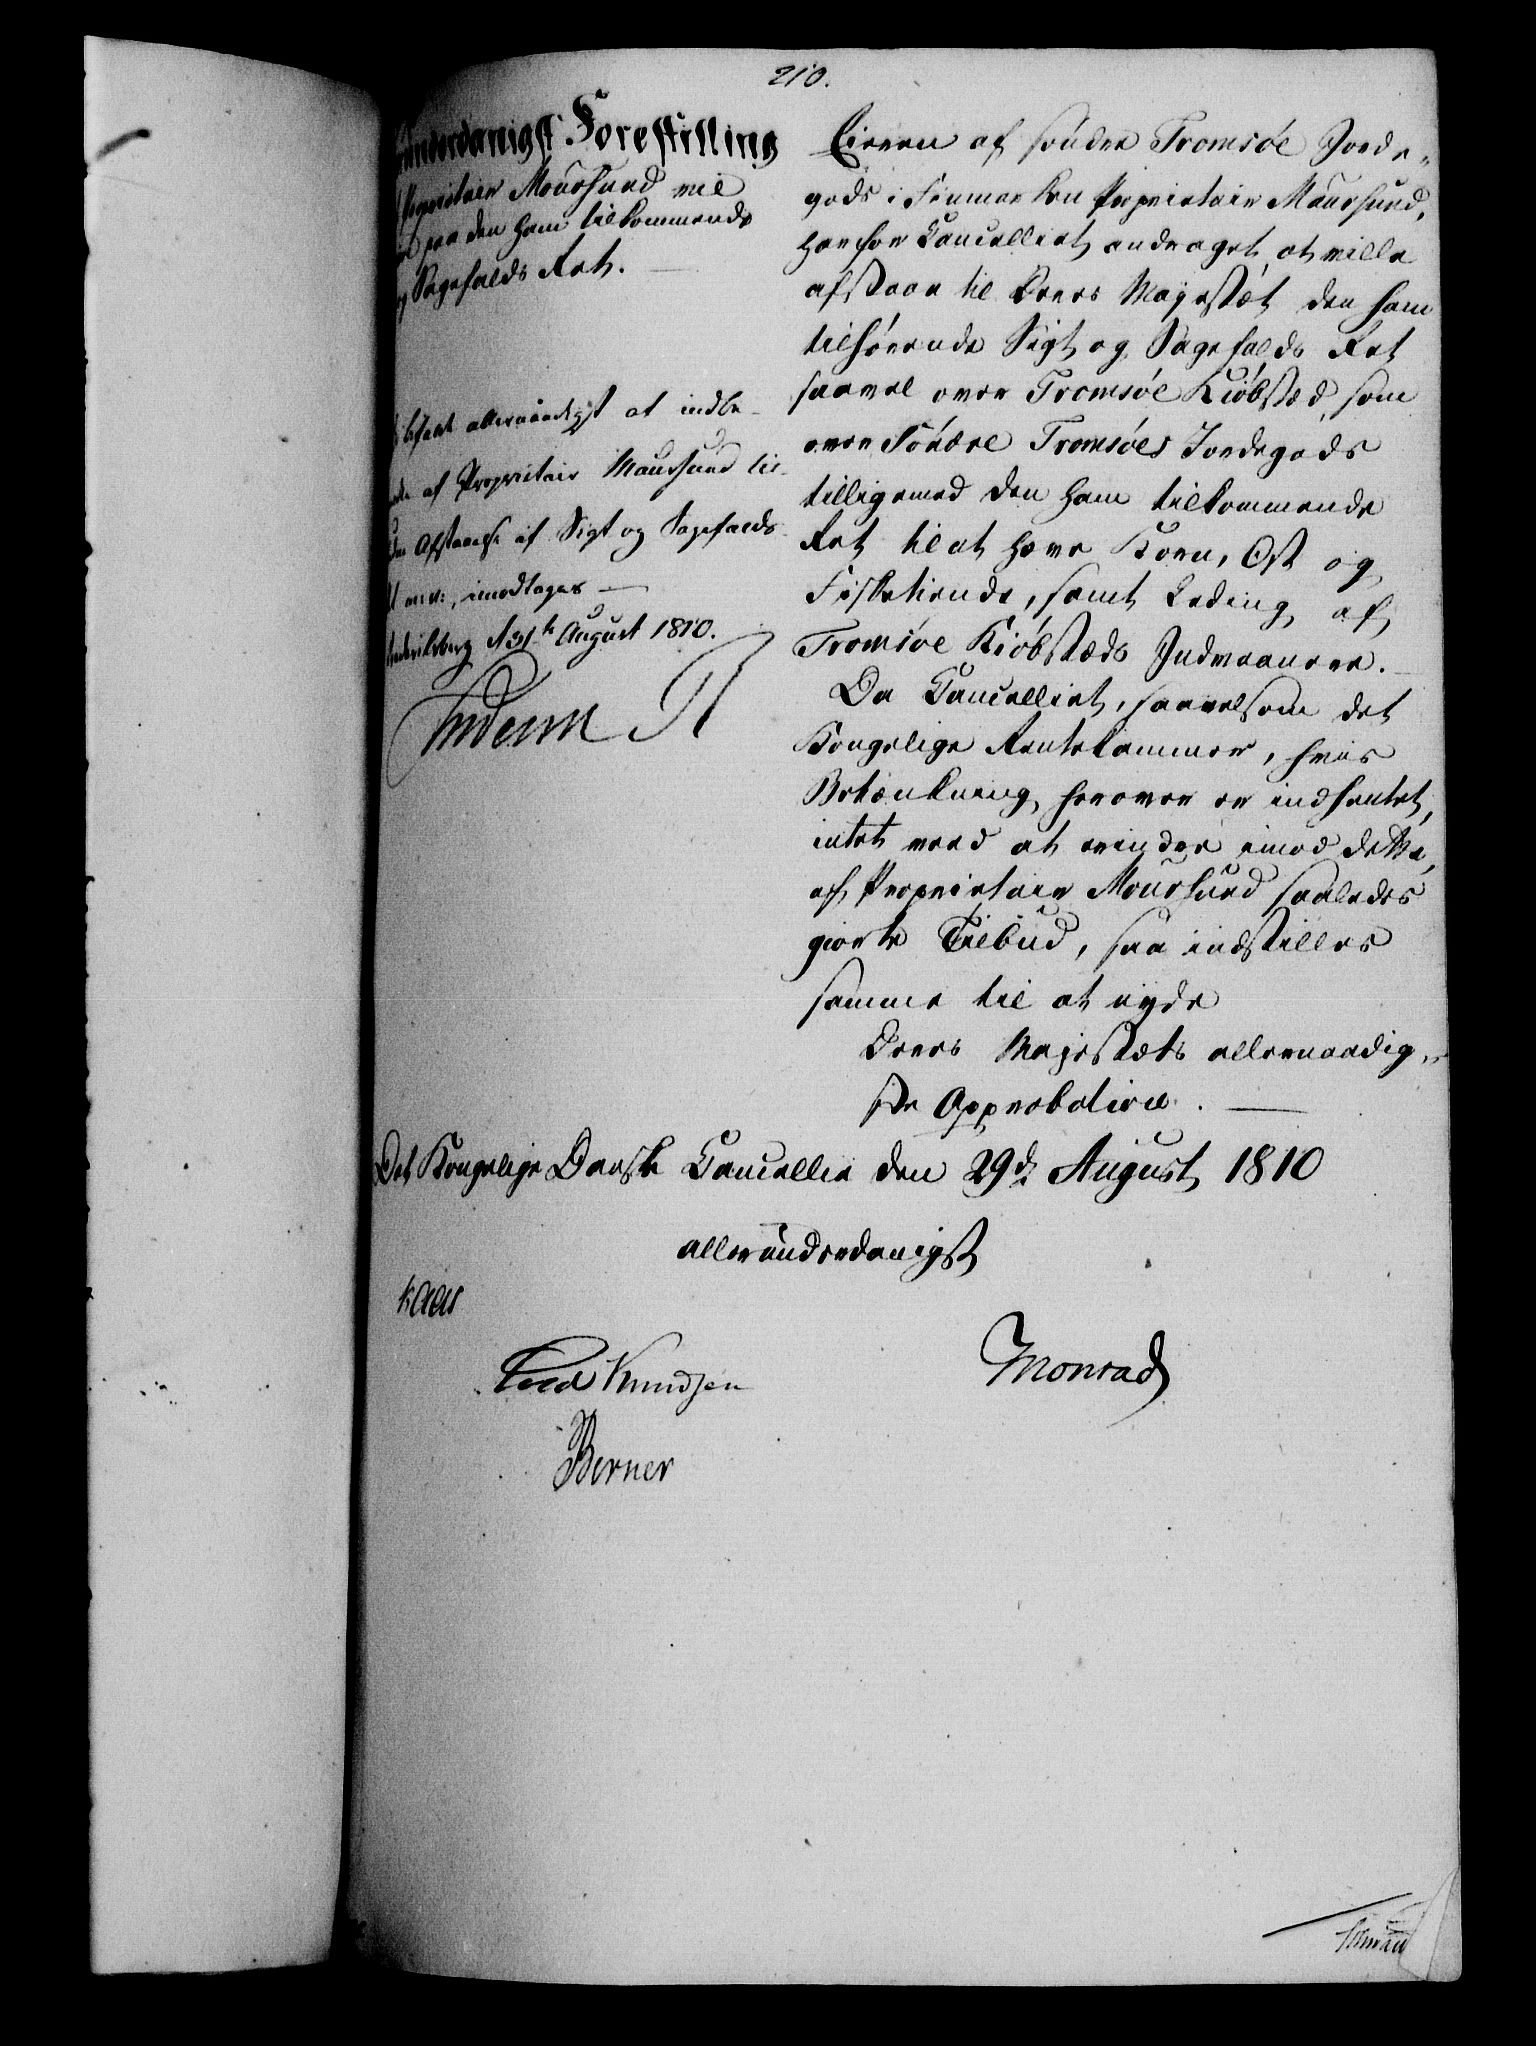 210.
Allerunderdanigst Forestilling
Proprietair Moursund vil
paa den ham tilkommende
og Sagefalds Ret.
befale allernaadigst at indbe-
af Proprietair Moursund til-
Afstaaelse af Sigt og Sagefalds
imodtages
Frederiksberg d 31te August 1810.
Frederik R
Eieren af søndre Tromsøe Jorde-
gods i Finmarken Proprietair Moursund,
har for Cancelliet andraget, at ville
afstaae til Deres Majestæt den ham
tilhørende Sigt og Sagefalds Ret
saavel over Tromsøe Kiøbsted, som
over Søndre Tromsøes Jordegods
tilligemed den ham tilkommende
Ret til at hæve Korn, Ost og
Fisketiende, samt Leding af
Tromsøe Kiøbstæds Indvaanere.
Da Cancelliet, saavelsom det
Kongelige Rentekammer, hvis
Betænkning herover er indhentet,
intet veed at erindre imod dette,
af Proprietair Moursund saaledes
giorte Tilbud, saa indstilles
samme til at nyde
Deres Majestæts allernaadig-
ste Approbation.
Det Kongelige Danske Cancellie den 29de August 1810
allerunderdanigst
Kaas
Fred Knudsen
Monrad
Berner